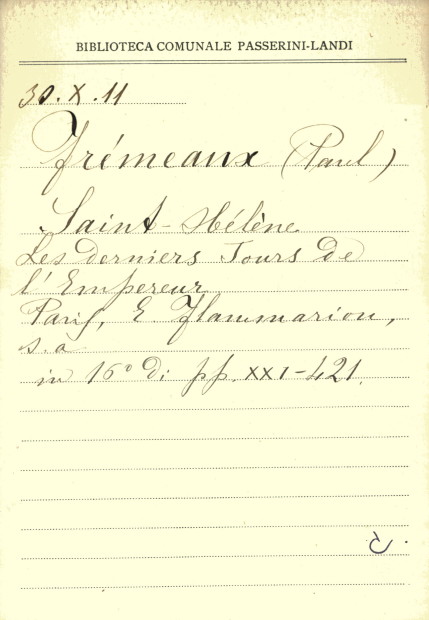 BIBLIOTECA COMUNALE PASSERINI-LANDI
30.X.11
Frémeaux (Paul)
Saint-Hélène
Les derniers Jours de
l'Empereur
Paris, E. Flammarion,
s.a
in 16° di pp. XXI-421.